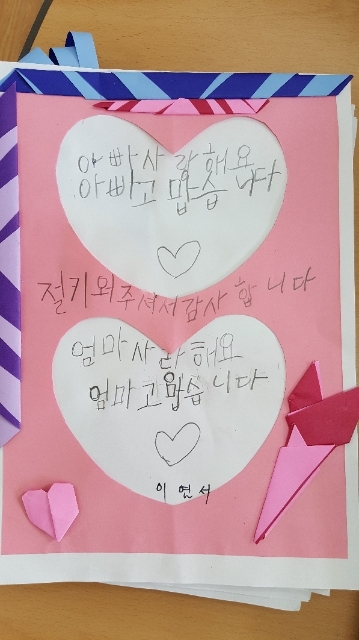 아빠사랑해요
아빠고맙습니다
절키워주셔서감사합니다
엄마사랑해요
엄마고맙습니다
이연서